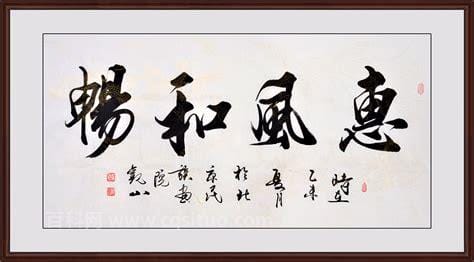 惠風和暢
時在
乙未
夏月
於北
京民
族畫
院
觀山
百科网 www.cqsituo.com